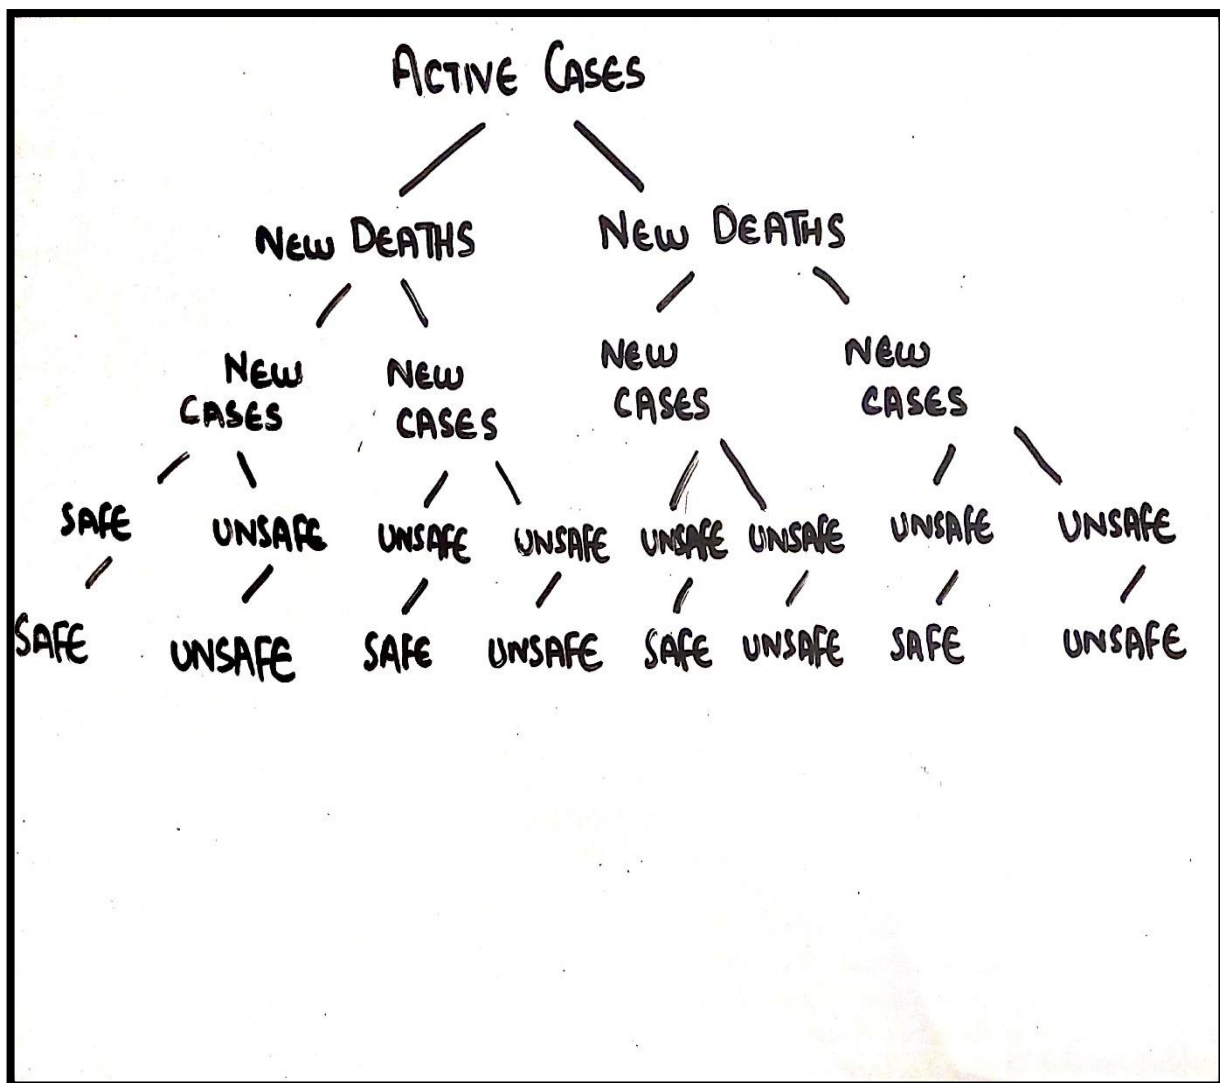 ACTIVE CASES
NEW DEATHS NEW DEATHS
NEW NEW NEW NEW
CASES CASES CASES CASES
SAFE UNSAFE UNSAFE UNSAFE UNSAFE UNSAFE UNSAFE UNSAFE
SAFE UNSAFE SAFE UNSAFE SAFE UNSAFE SAFE UNSAFE